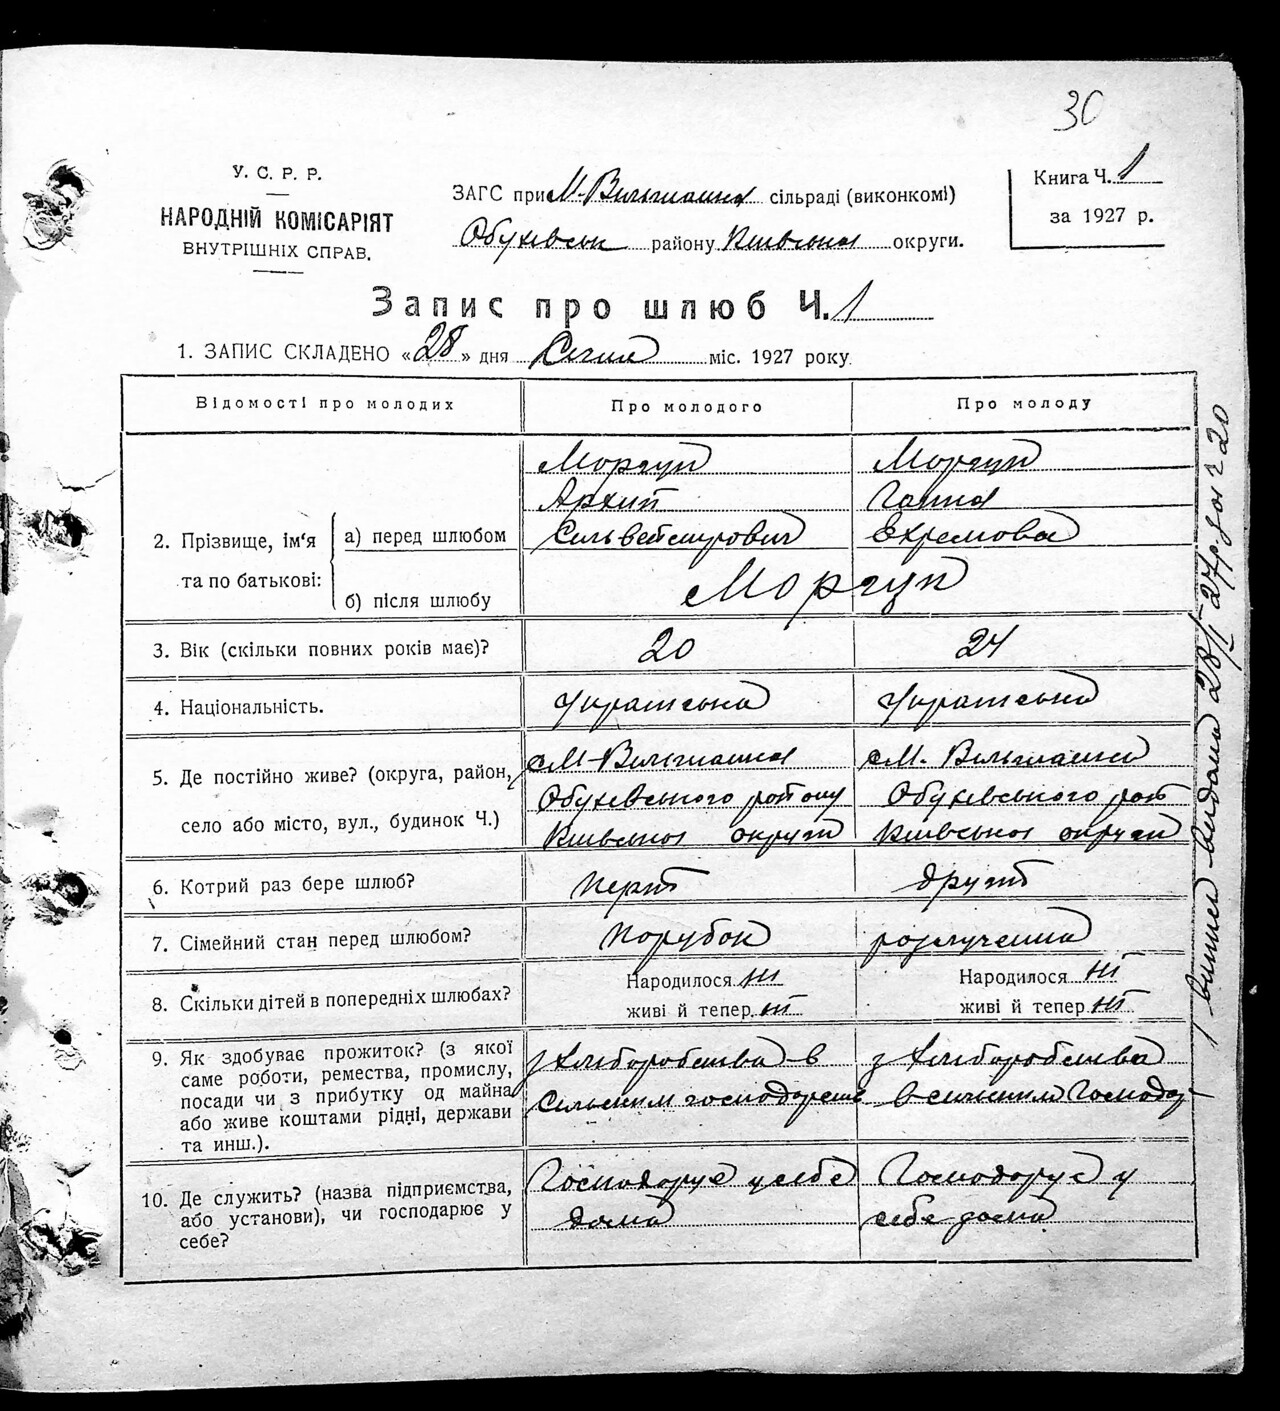 30
У. С. Р. Р.
НАРОДНІЙ КОМІСАРІЯТ
ВНУТРІШНІХ СПРАВ.
ЗАГС при М-Вільшанка сільраді (виконкомі)
Обухівськ району Київської округи.
Книга Ч. 1
за 1927 р.
Запис про шлюб Ч. 1
1. ЗАПИС СКЛАДЕНО «28» дня Січня міс. 1927 року.
Відомості про молодих
Про молодого
Про молоду
2. Прізвище, ім'я та по батькові:
а) перед шлюбом
Моргун
Архип
Сильвестрович
Моргун
Ганна
Охремова
б) після шлюбу
Моргун
3. Вік (скільки повних років має)?
20
24
4. Національність.
Українська
Українська
5. Де постійно живе? (округа, район, село або місто, вул., будинок Ч.)
Обухівського району
Київської округи
Обухівського рай
Київської округи
6. Котрий раз бере шлюб?
перш
другий
7. Сімейний стан перед шлюбом?
Парубок
розлучена
8. Скільки дітей в попередніх шлюбах?
Народилося ні
живі й тепер ні
Народилося ні
живі й тепер ні
9. Як здобуває прожиток? (з якої
саме роботи, ремества, промислу,
посади чи з прибутку од майна
або живе коштами рідні, держави
та инш.).
з хліборобства в
сільським господарстві
з хліборобства
10. Де служить? (назва підприємства,
або установи), чи господарює у
себе?
Господарує у себе
дома
Господарує у
себе дома